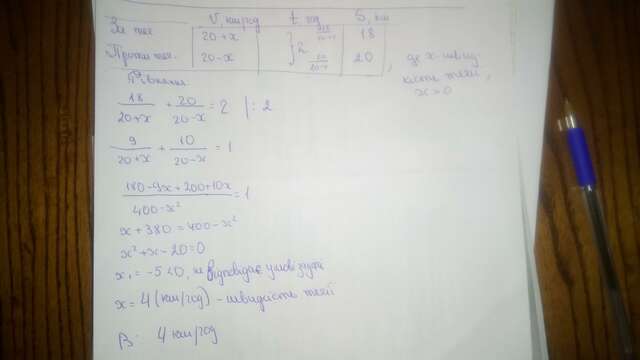 V, км/год t, год S, км
За теч. 20+x 18/20+x 18
Проти теч. 20-x } 2 20/20-x 20, де x - швид
кість течії,
x>0
Рівняння
18/20+x + 20/20-x = 2 |:2
9/20+x + 10/20-x = 1
180-9x+200+10x/400-x² = 1
x+380=400-x²
x²+x-20=0
x₁=-5<0, не відповідає умові задачі
x=4 (км/год) - швидкість течії
В: 4 км/год